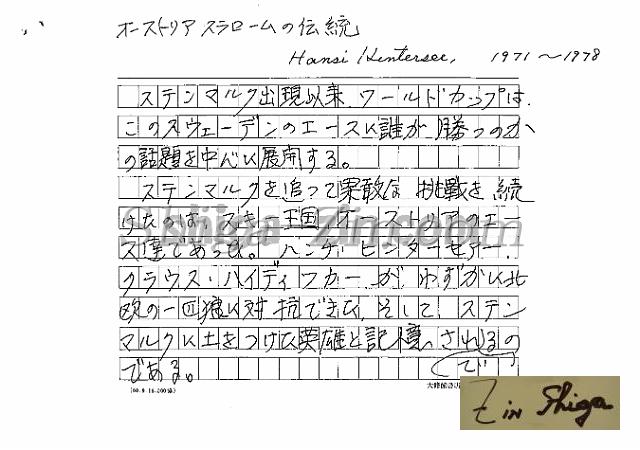 オーストリア スラロームの伝統
Hansi Hinterseer, 1971〜1978
ステンマルク出現以来、ワールドカップは、
このスウェーデンのエースに誰が勝つのか、
の話題を中心に展開する。
ステンマルクを追って果敢な挑戦を続
けたのは、スキー王国、オーストリアのエー
ス達であった。ハンジ・ヒンターゼアー、
クラウス・ハイディフカーがわずかに北
欧の一匹狼に対抗できた、そして、ステン
マルクに土をつけた英雄と記憶されるの
である。
で
(60.9.16-200
大修館
Shiga Zin.com
Z in Shiga